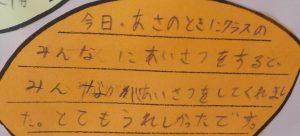 今日、あさのときにクラスの
みんなにあいさつをすると、
みんながあいさつをしてくれまし
た。とてもうれしかったです